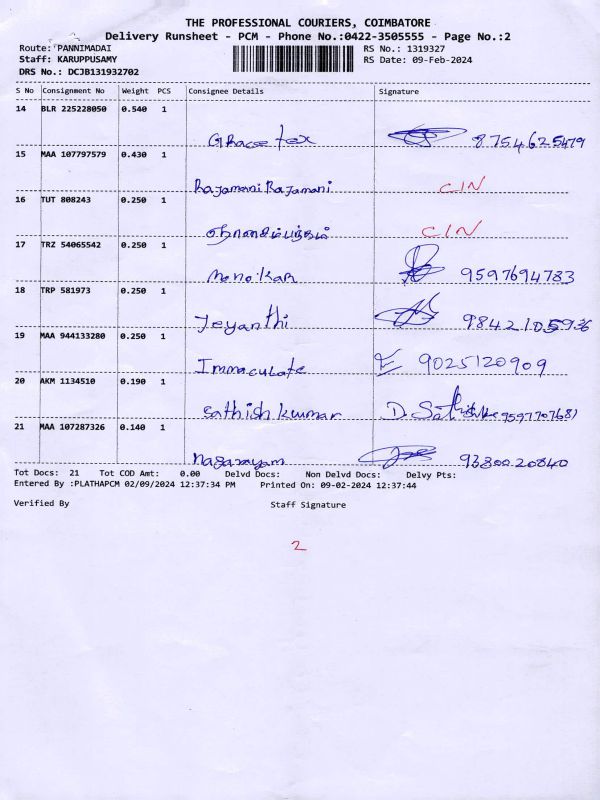 THE PROFESSIONAL COURIERS, COIMBATORE
Delivery Runsheet - PCM - Phone No.:0422-3505555 - Page No.:2
Route: PANNIMADAI RS No.: 1319327
Staff: KARUPPUSAMY RS Date: 09-Feb-2024
DRS No.: DCJB131932702
S No Consignment No Weight PCS Consignee Details Signature
14 BLR 225228050 0.540 1
Grace tex 8754625479
15 MAA 107797579 0.430 1
Rajamani Rajamani CIN
16 TUT 808243 0.250 1
CIN
17 TRZ 54065542 0.250 1
Manokar 9597694783
18 TRP 581973 0.250 1
Jeyanthi 9842105936
19 MAA 944133280 0.250 1
Immaculate 9025120909
20 AKM 1134510 0.190 1
Sathish kumar 9597707681
21 MAA 107287326 0.140 1
9380020840
Tot Docs: 21 Tot COD Amt: 0.00 Delvd Docs: Non Delvd Docs: Delvy Pts:
Entered By :PLATHAPCM 02/09/2024 12:37:34 PM Printed On: 09-02-2024 12:37:44
Verified By Staff Signature
2